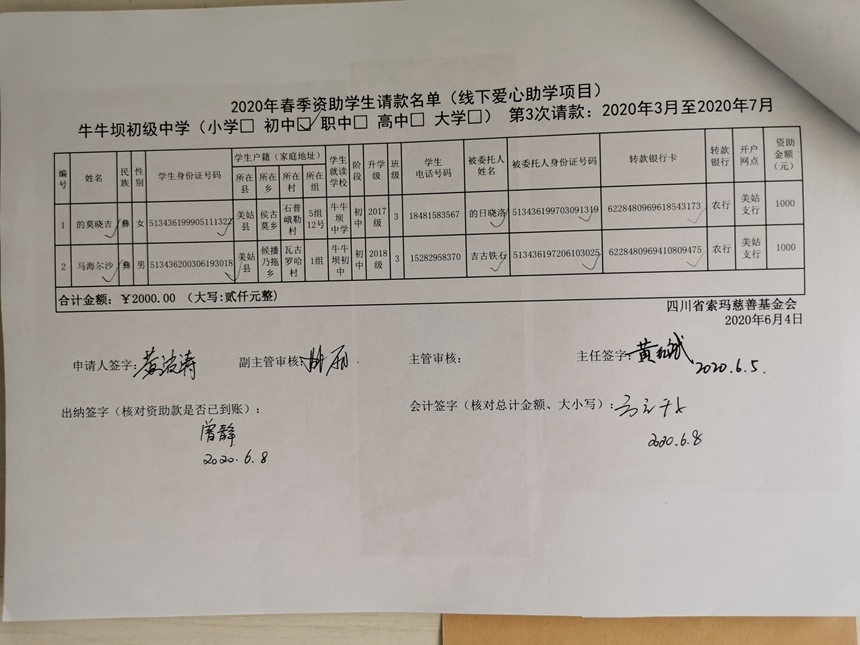 2020年春季资助学生请款名单（线下爱心助学项目）
牛牛坝初级中学（小学□ 初中☑ 职中□ 高中□ 大学□） 第3次请款：2020年3月至2020年7月
编号 姓名 民族 性别 学生身份证号码 学生户籍（家庭地址） 所在县 所在乡 所在村 所在组 学生就读学校 阶段 升学级 班级 学生电话号码 被委托人姓名 被委托人身份证号码 转款银行卡 转款银行 开户网点 资助金额（元）
1 的莫晓吉 彝 女 513436199905111322 美姑县 侯古莫乡 石普峨勒村 5组12号 牛牛坝中学 初中 2017级 3 18481583567 的日晓洛 513436199703091319 6228480969618543173 农行 美姑支行 1000
2 马海尔沙 彝 男 513436200306193018 美姑县 候播乃拖乡 瓦古罗哈村 1组 牛牛坝初中 初中 2018级 3 15282958370 吉古铁石 513436197206103025 6228480969410809475 农行 美姑支行 1000
合计金额：￥2000.00 （大写:贰仟元整）
四川省索玛慈善基金会
2020年6月4日
申请人签字： 副主管审核： 主管审核： 主任签字：
2020.6.5.
出纳签字（核对资助款是否已到账）： 会计签字（核对总计金额、大小写）：
曾静
2020.6.8
2020.6.8